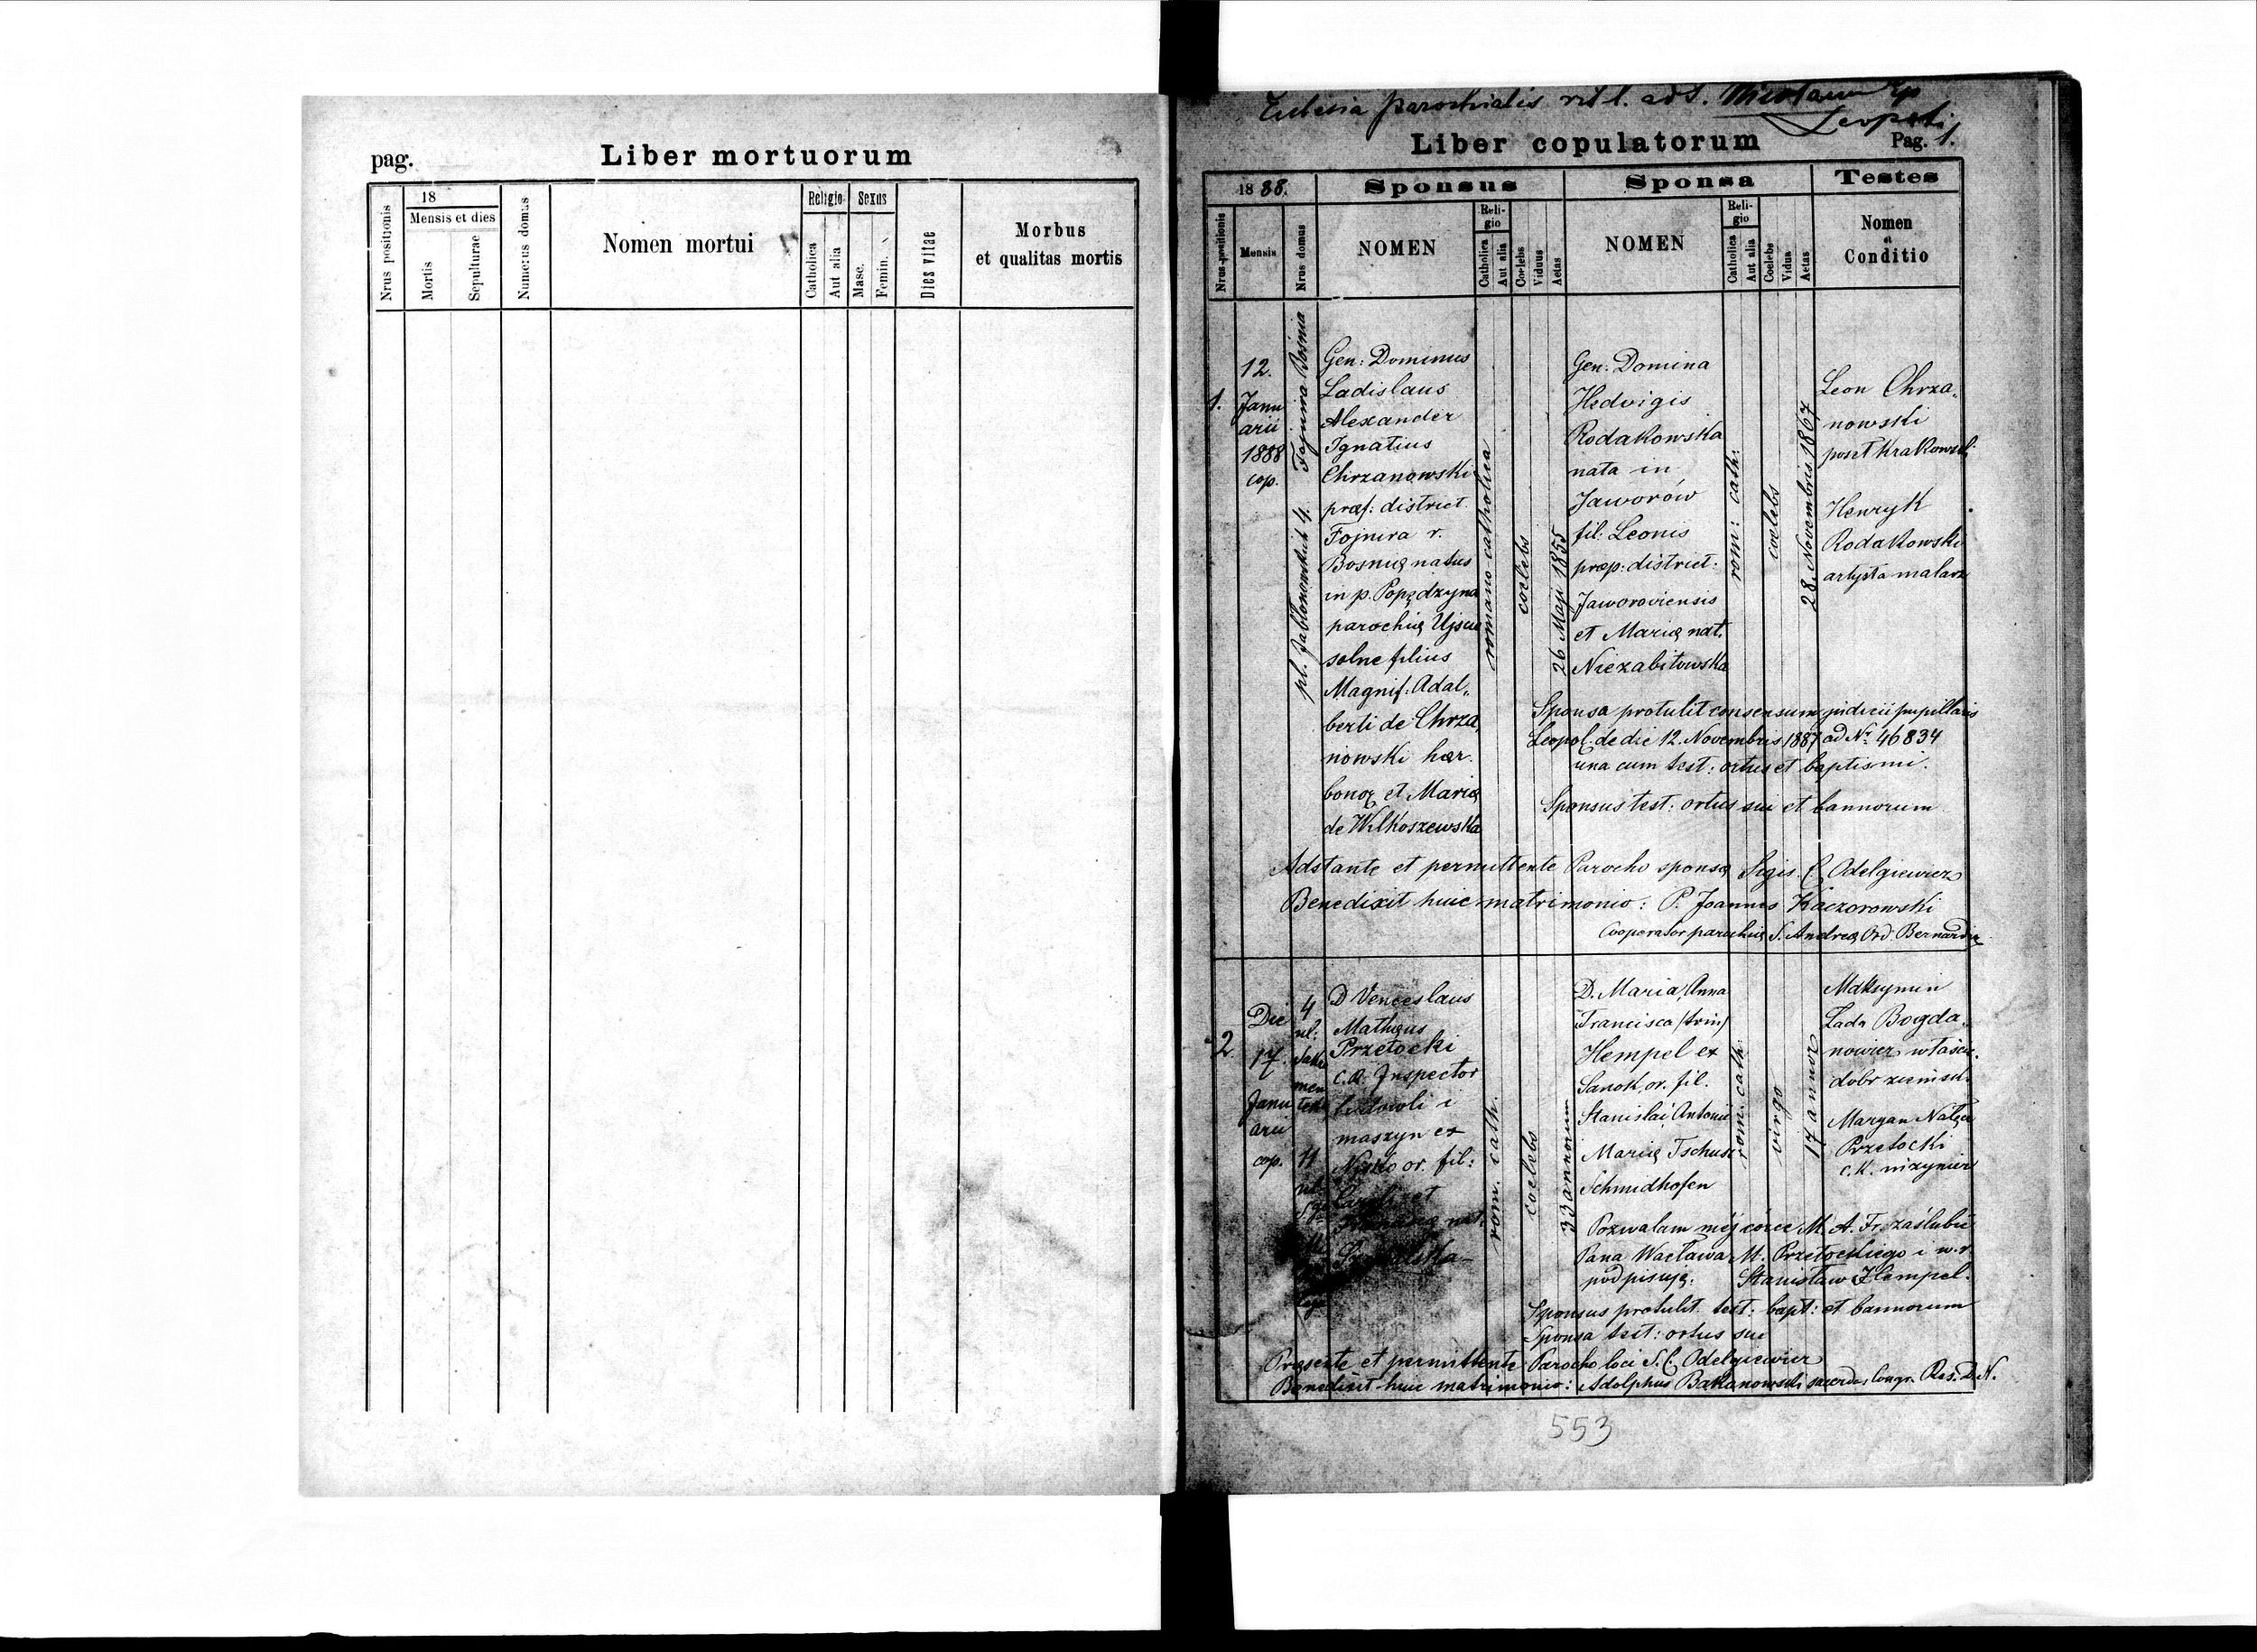 pag.
Liber mortuorum
Nrus positionis
18
Mensis et dies
Mortis
Sepulturae
Numerus domus
Nomen mortui
Religio
Catholica
Aut alia
Sexus
Masc.
Femin.
Dies vitae
Morbus
et qualitas mortis
parochialis rit l. ad S.
Leopoli
Liber copulatorum
Pag. 1.
1888.
Sponsus
Sponsa
Testes
Nrus positionis
Mensis
Nrus domus
NOMEN
Reli-
gio
Catholica
Aut alia
Coelebs
Viduus
Aetas
NOMEN
Reli-
gio
Catholica
Aut alia
Coelebs
Vidua
Aetas
Nomen
et
Conditio
1.
12.
Janu
arii
1888
cop.
pl. Jabłonowskich 4.
Bosnia
Gen: Dominus
Ladislaus
Alexander
Ignatius
Chrzanowski
præf: district.
Fojnica r.
Bosnię natus
in p. Popędzyna
parochię Ujscie
solne filius
Magnif: Adal„
berti de Chrza„
nowski hær.
bonoꝝ et Marię
de Wilkoszewska
romano catholica
coelebs
26 Maji 1855
Gen: Domina
Hedvigis
Rodakowska
nata in
Jaworów
fil: Leonis
præp: district:
Jaworoviensis
et Marię nat.
Niezabitowska
rom: cath:
coelebs
28. Novembris 1867
Leon Chrza„
nowski
poseł Krakowski
Henryk
Rodakowski
artysta malarz
Sponsa protulit consensum judicii pupillaris
Leopol. de die 12. Novembris 1887 ad Nr. 46834
una cum test: ortus et baptismi.
Sponsus test: ortus sui et bannorum
Adstante et permittente Parocho sponsę Sigis. C. Odelgiewicz
Benedixit huic matrimonio: P. Joannes Kaczorowski
Cooperator parochię S. Andreę Ord. Bernardin
2.
Die
17.
Janu
arii
cop.
4
ul.
11
D Venceslaus
Matheus
Przetocki
c.k. Inspector
budowli i
maszyn ex
Nisko or. fil:
Caroli et
nat.
rom. cath.
coelebs
33 annorum
D. Maria, Anna
Francisca (trin)
Hempel ex
Sanok or. fil.
Stanislai, Antonii
Marię Tschusi
Schmidhofen
rom: cath:
virgo
17 annoꝝ
Maksymin
Łada Bogda„
nowicz właśc.
dobr ziemsk.
Maryan Nałęcz
Przetocki
c.k. inżynier
Pozwalam mej córce M. A. Fr. zaślubić
Pana Wacława M. Przetockiego i w.r.
podpisuję. Stanisław Hempel.
Sponsus protulit test: bapt: et bannorum
Sponsa test: ortus sui
Pręsente et permittente Parocho loci S. C. Odelgiewicz
Benedixit huic matrimonio: Adolphus Bakanowski sacerdos Congr. Res. D. N.
553